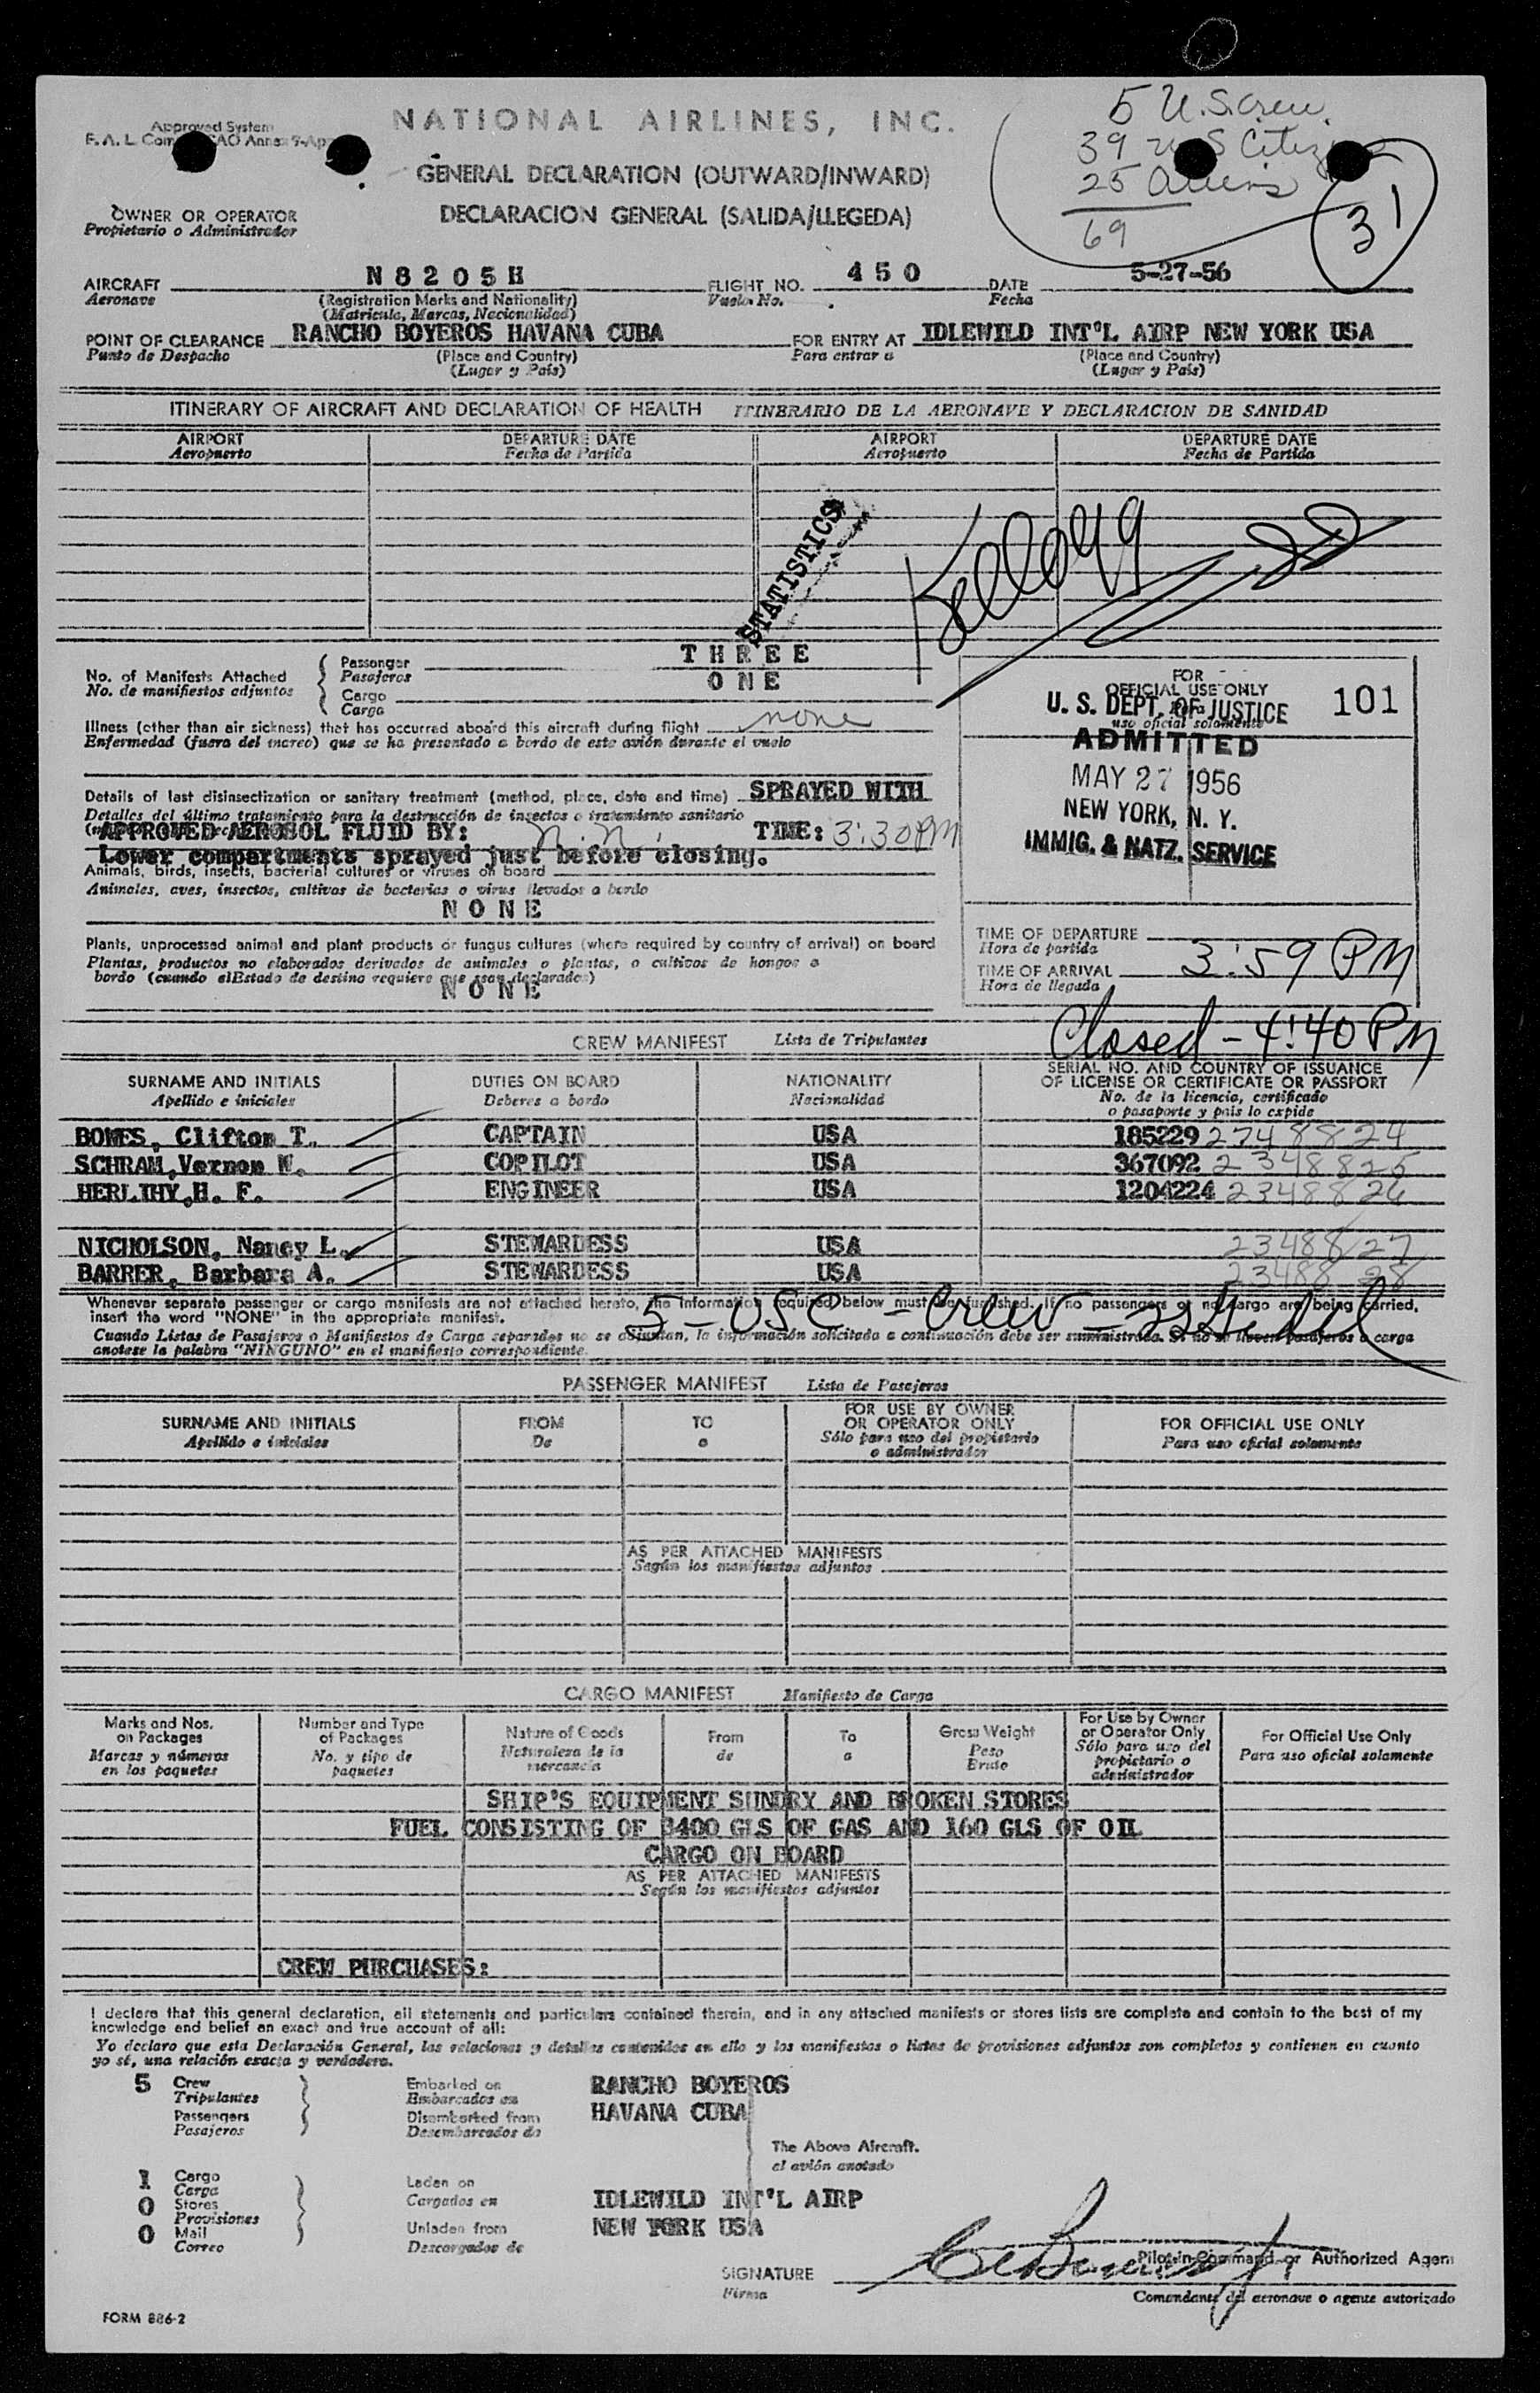 5 U.S. crew
NATIONAL AIRLINES, INC.
Approved System
39 U S Citiz
25 Aliens
69
31
GENERAL DECLARATION (OUTWARD/INWARD)
DECLARACION GENERAL (SALIDA/LLEGEDA)
OWNER OR OPERATOR
Propietario o Administrador
AIRCRAFT N 8 2 0 5 H FLIGHT NO. 4 5 0 DATE 5-27-56
Aeronave (Registration Marks and Nationality) Vuelo No. Fecha
(Matricula, Marcas, Nacionalidad)
POINT OF CLEARANCE RANCHO BOYEROS HAVANA CUBA FOR ENTRY AT IDLEWILD INT'L AIRP NEW YORK USA
Punto de Despacho (Place and Country) Para entrar a (Place and Country)
(Lugar y País) (Lugar y País)
ITINERARY OF AIRCRAFT AND DECLARATION OF HEALTH ITINERARIO DE LA AERONAVE Y DECLARACION DE SANIDAD
AIRPORT DEPARTURE DATE AIRPORT DEPARTURE DATE
Aeropuerto Fecha de Partida Aeropuerto Fecha de Partida
STATISTICS
Kellogg
No. of Manifests Attached Passenger THREE
No. de manifiestos adjuntos Pasajeros
Cargo ONE
Carga
Illness (other than air sickness) that has occurred aboard this aircraft during flight none
Enfermedad (fuera del mareo) que se ha presentado a bordo de este avión durante el vuelo
FOR
OFFICIAL USE ONLY
uso oficial solamente
U. S. DEPT. OF JUSTICE 101
ADMITTED
MAY 27 1956
NEW YORK, N. Y.
IMMIG. & NATZ. SERVICE
Details of last disinsectization or sanitary treatment (method, place, date and time) SPRAYED WITH
Detalles del último tratamiento para la destrucción de insectos o tratamiento sanitario
APPROVED AEROSOL FLUID BY: n. n. TIME: 3:30PM
Lower compartments sprayed just before closing.
Animals, birds, insects, bacterial cultures or viruses on board
Animales, aves, insectos, cultivos de bacterias o virus llevados a bordo
NONE
Plants, unprocessed animal and plant products or fungus cultures (where required by country of arrival) on board
Plantas, productos no elaborados derivados de animales o plantas, o cultivos de hongos a
bordo (cuando elEstado de destino requiere que sean declarados)
NONE
TIME OF DEPARTURE
Hora de partida
TIME OF ARRIVAL 3:59 PM
Hora de llegada
Closed - 4:40 PM
CREW MANIFEST Lista de Tripulantes
SURNAME AND INITIALS DUTIES ON BOARD NATIONALITY SERIAL NO. AND COUNTRY OF ISSUANCE
OF LICENSE OR CERTIFICATE OR PASSPORT
Apellido e iniciales Deberes a bordo Nacionalidad No. de la licencia, certificado
o pasaporte y pais lo expide
BOWES, Clifton T. CAPTAIN USA 185229 2748824
SCHRAM, Vernon W. COPILOT USA 367092 2348825
HERLIHY, H. F. ENGINEER USA 1204224 2348826
NICHOLSON, Nancy L. STEWARDESS USA 2348827
BARRER, Barbara A. STEWARDESS USA 2348828
Whenever separate passenger or cargo manifests are not attached hereto, the information required below must be furnished. If no passengers or no cargo are being carried,
insert the word "NONE" in the appropriate manifest.
5 - USC - Crew
Cuando Listas de Pasajeros o Manifiestos de Carga separados no se adjuntan, la información solicitada a continuación debe ser suministrada. Si no se llevan pasajeros o carga
anotese la palabra "NINGUNO" en el manifiesto correspondiente.
PASSENGER MANIFEST Lista de Pasajeros
SURNAME AND INITIALS FROM TO FOR USE BY OWNER OR OPERATOR ONLY FOR OFFICIAL USE ONLY
Apellido e iniciales De a Sólo para uso del propietario o administrador Para uso oficial solamente
AS PER ATTACHED MANIFESTS
Según los manifiestos adjuntos
CARGO MANIFEST Manifiesto de Carga
Marks and Nos. on Packages Number and Type of Packages Nature of Goods From To Gross Weight For Use by Owner or Operator Only For Official Use Only
Marcas y números en los paquetes No. y tipo de paquetes Naturaleza de la mercancía de a Peso Bruto Sólo para uso del propietario o administrador Para uso oficial solamente
SHIP'S EQUIPMENT SUNDRY AND BROKEN STORES
FUEL CONSISTING OF 3400 GLS OF GAS AND 160 GLS OF OIL
CARGO ON BOARD
AS PER ATTACHED MANIFESTS
Según los manifiestos adjuntos
CREW PURCHASES:
I declare that this general declaration, all statements and particulars contained therein, and in any attached manifests or stores lists are complete and contain to the best of my
knowledge and belief an exact and true account of all:
Yo declaro que esta Declaración General, las relaciones y detalles contenidos en ella y los manifiestos o listas de provisiones adjuntos son completos y contienen en cuanto
yo sé, una relación exacta y verdadera.
5 Crew Embarked on RANCHO BOYEROS
Tripulantes Embarcados en
Passengers Disembarked from HAVANA CUBA
Pasajeros Desembarcados de
The Above Aircraft.
el avión anotado
1 Cargo Laden on IDLEWILD INT'L AIRP
Carga Cargados en
0 Stores
Provisiones
0 Mail Unladen from NEW YORK USA
Correo Descargados de
SIGNATURE Pilot-in-Command or Authorized Agent
Firma Comandante del aeronave o agente autorizado
FORM 886-2